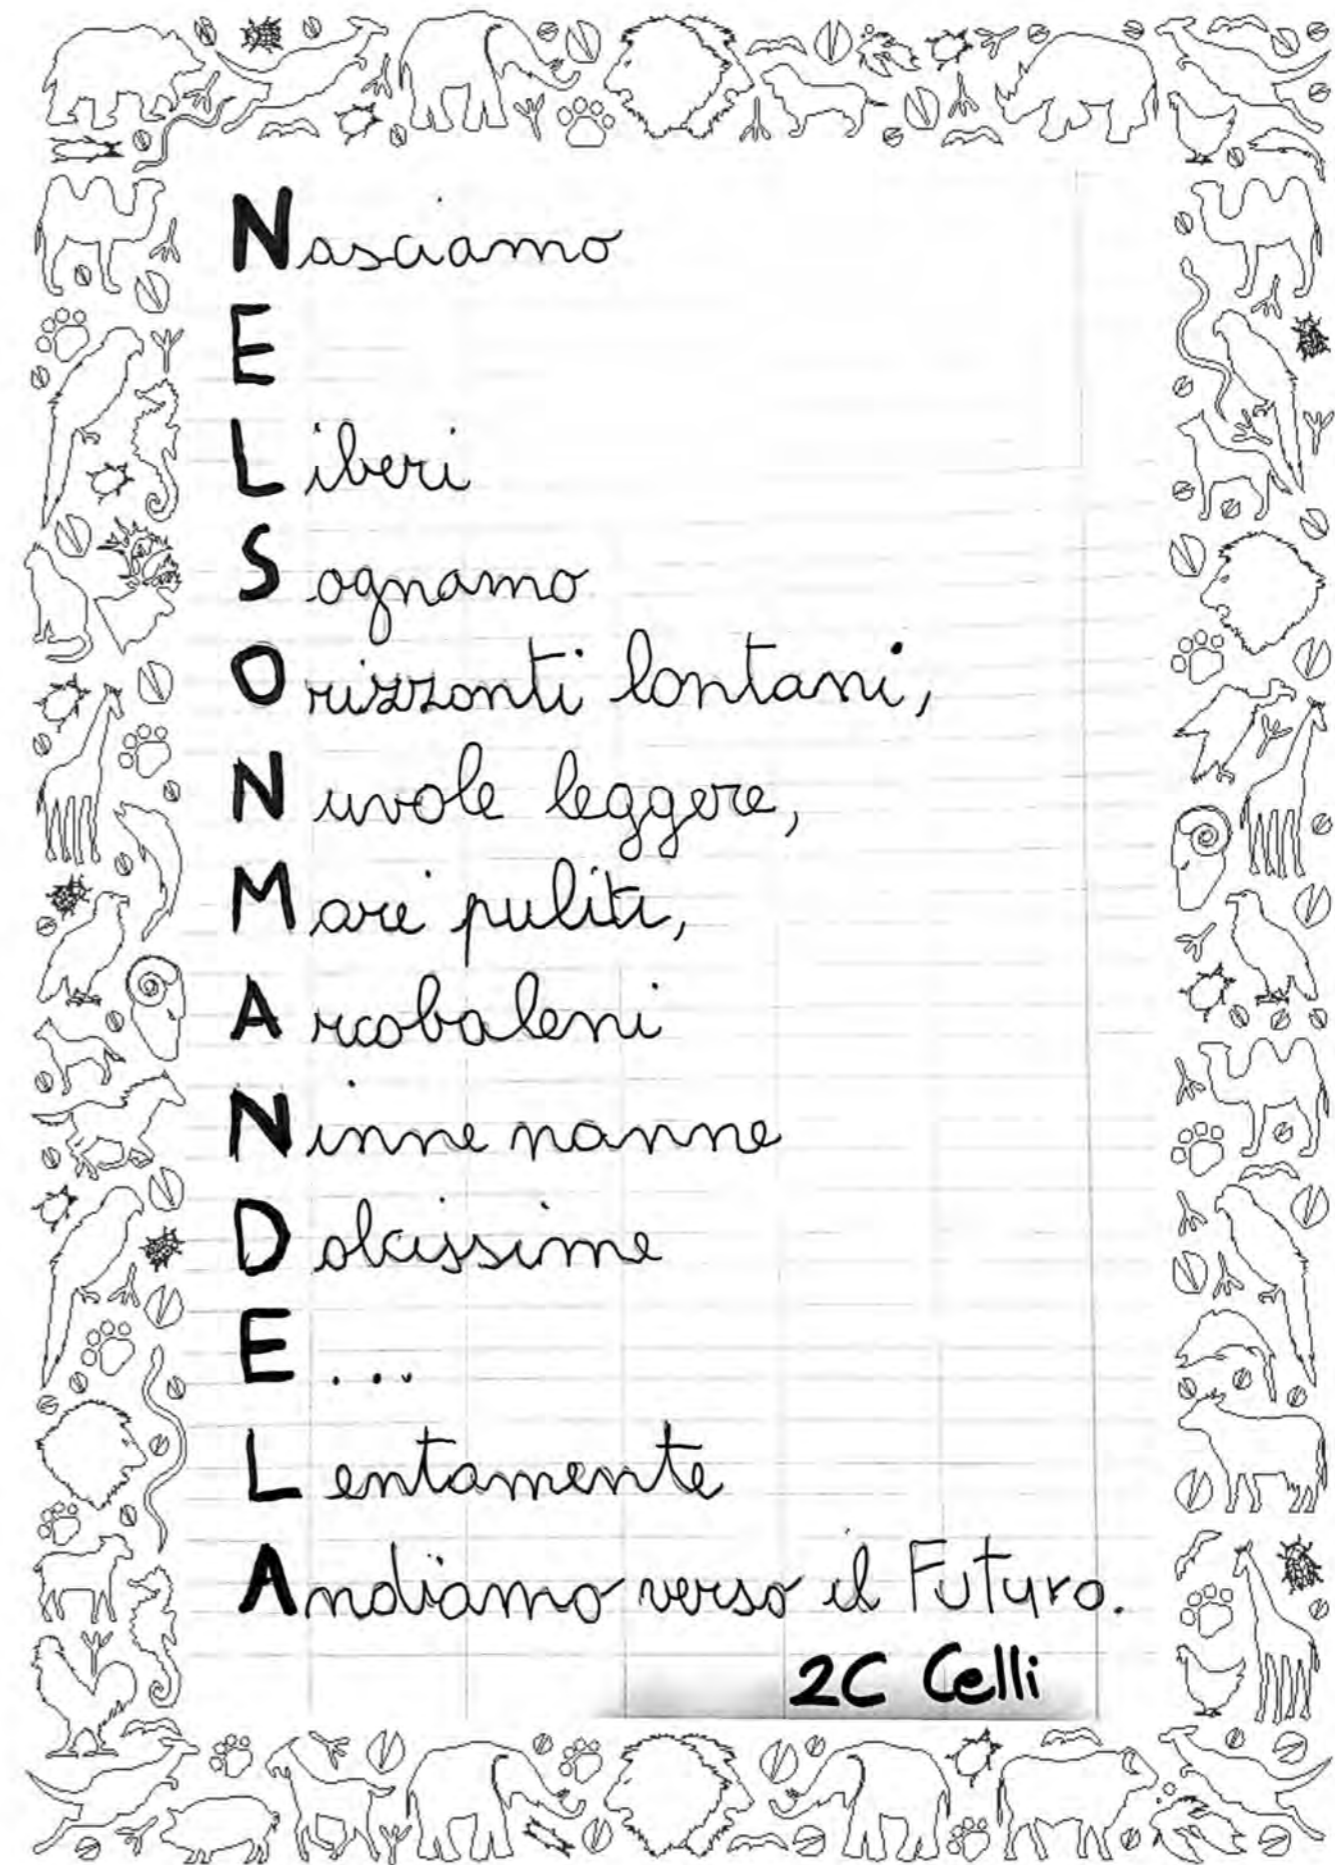 Nasciamo
E
Liberi
Sognamo
Orizzonti lontani,
Nuvole leggere,
Mari puliti,
Arcobaleni
Ninne nanne
Dolcissime
E...
Lentamente
Andiamo verso il Futuro.
2C Celli